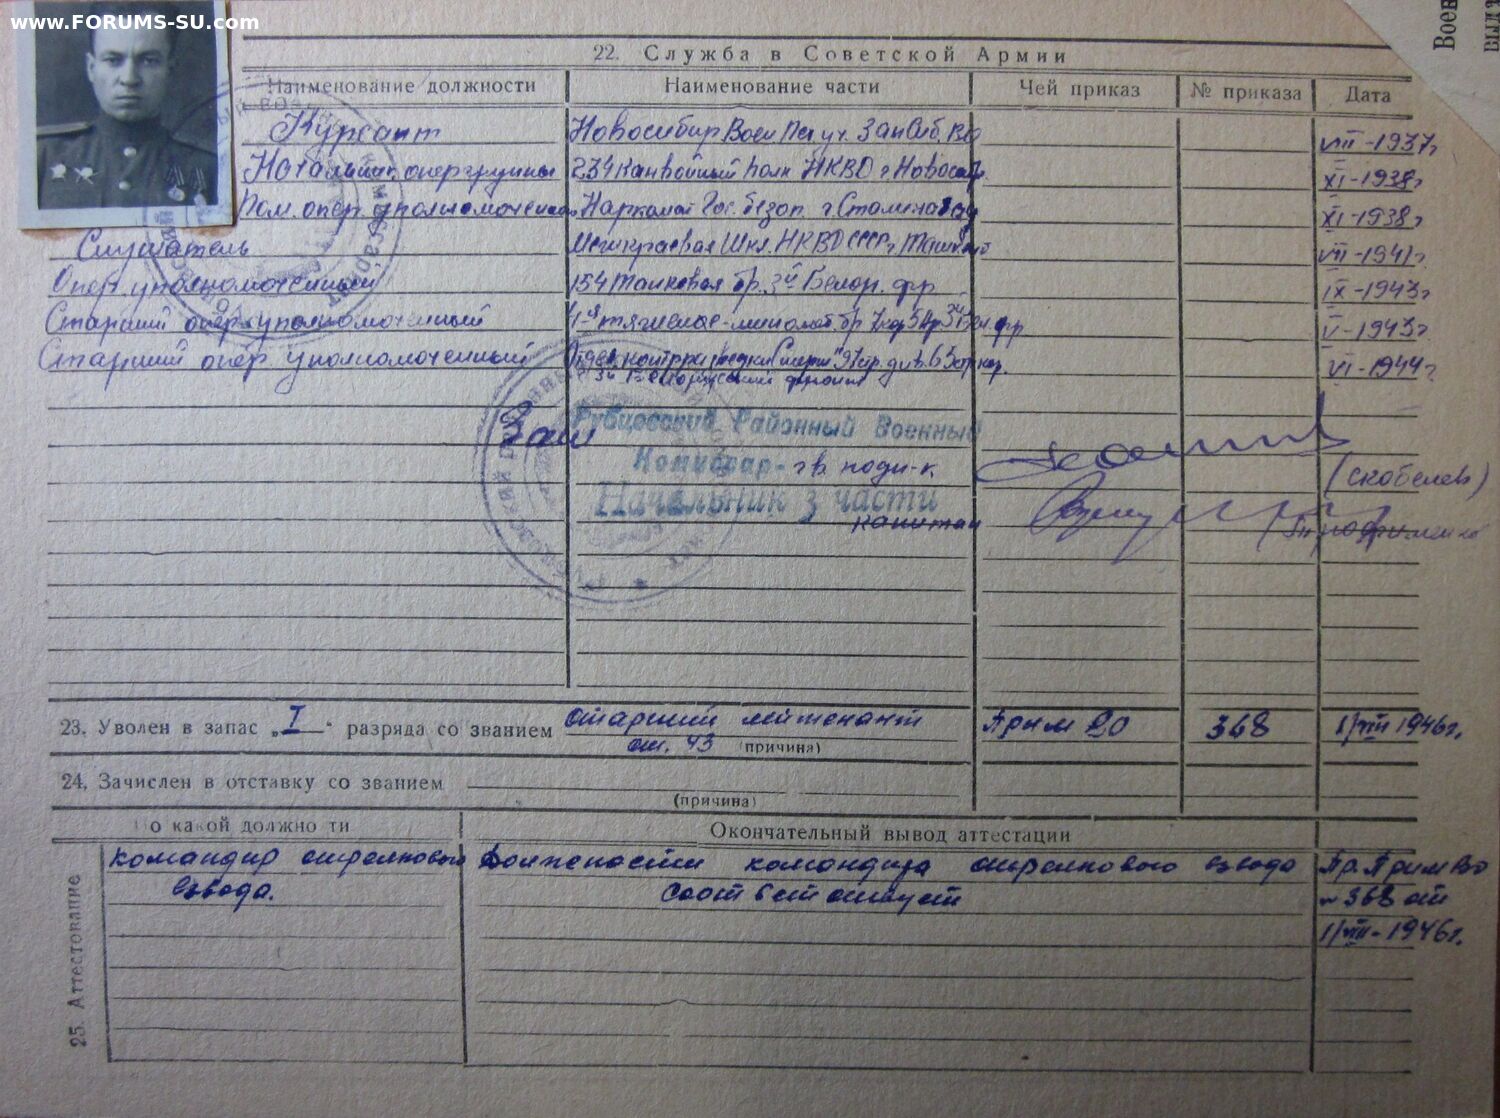 www.FORUMS-SU.com
22. Служба в Советской Армии
Наименование должности Наименование части Чей приказ № приказа Дата
Курсант Новосибир Воен Пех уч. ЗапСиб. ВО VIII-1937г
Начальник опергруппы 234 Канвойный полк НКВД г. Новосиб. XI-1938г
Пом. опер. уполномоченного Наркомат Гос. безоп. г. Сталинабад XI-1938г
Слушатель Межкраевая Шк. НКВД СССР г. Ташкент VII-1941г
Опер. уполномоченный 154 танковая бр. 3й Белор. фр IX-1943г
Старший опер уполномоченный V-1943г
Старший опер. уполномоченный Отдел контрразведки "Смерш" 97 стр. див. VI-1944г
3й Белорусский фронт
Рубцовский Районный Военный
Комиссар - гв. подп-к. (Скобелев)
Начальник 3 части
капитан
23. Уволен в запас „I" разряда со званием старший лейтенант Прим ВО 368 1/VIII 1946г.
ст. 43 (причина)
24. Зачислен в отставку со званием
(причина)
По какой должности Окончательный вывод аттестации
25. Аттестование
командир стрелкового Должности командира стрелкового взвода Пр. Прим ВО
взвода. соответствует №368 от
1/VIII-1946г.